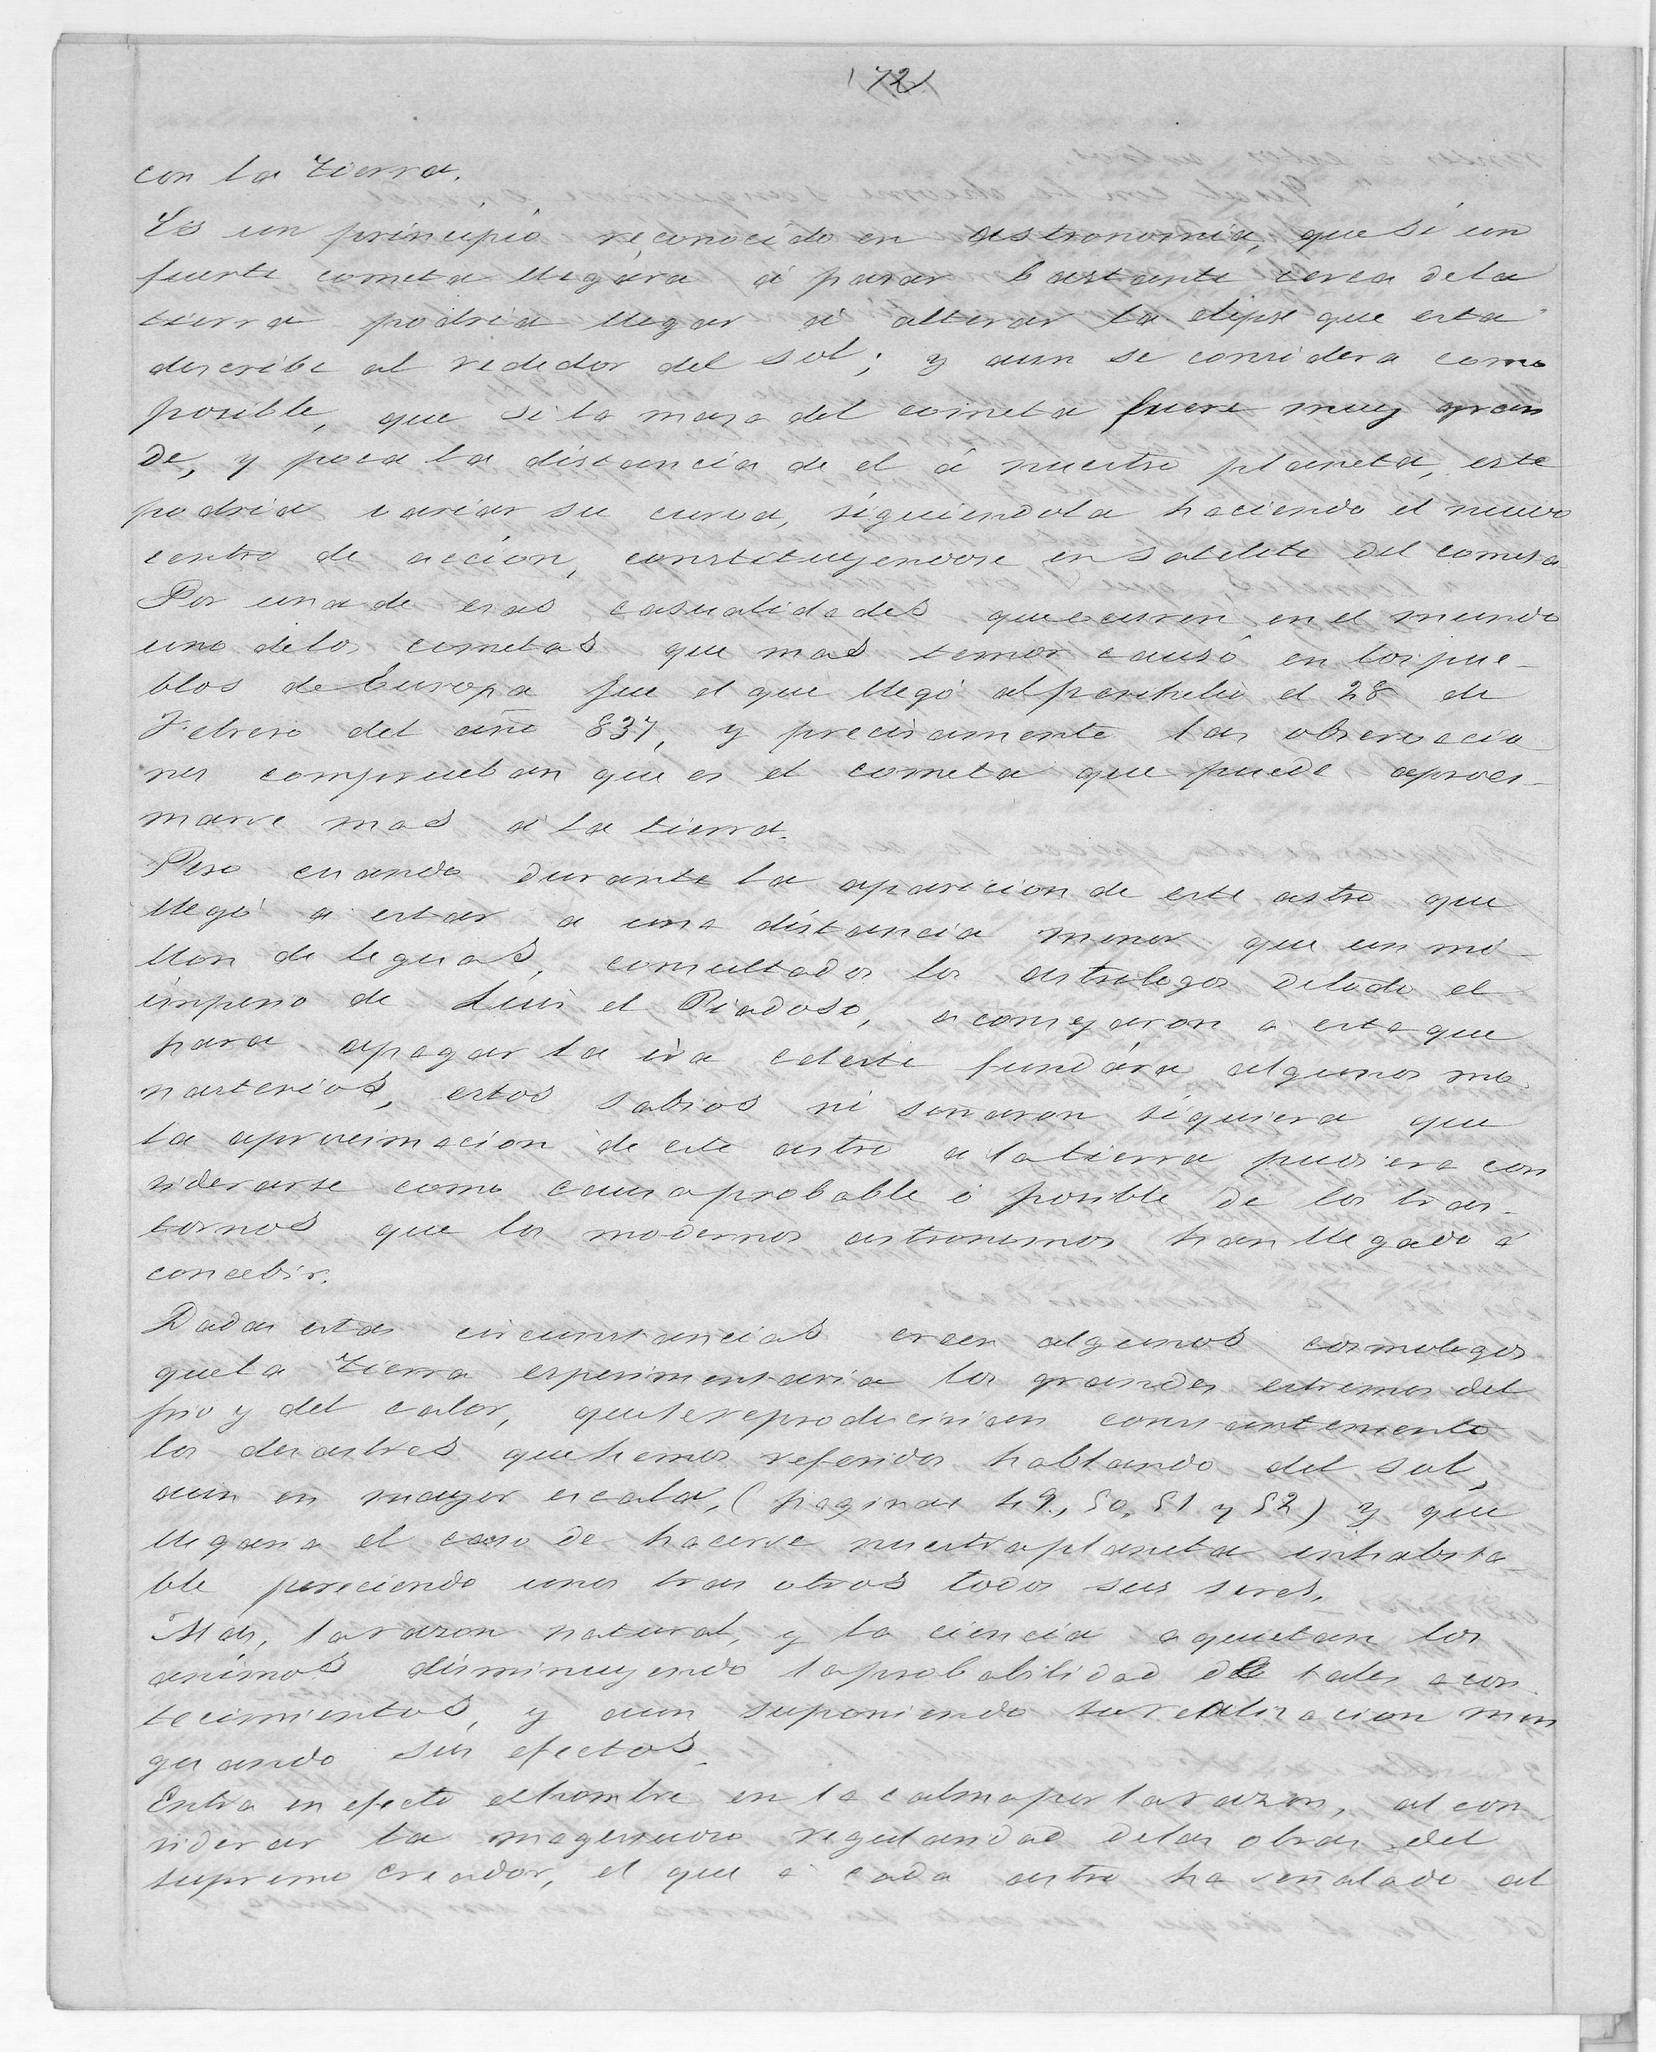 72
con la Tierra.
Es un principio reconocido en astronomia, que si un
fuerte cometa llegára á pasar bastante cerca de la
tierra podria llegar á alterar la elipse que esta
describe al rededor del sol; y aun se considera como
posible, que si la masa del cometa fuere muy gran
de, y poca la distancia de el á nuestro planeta, este
podria variar su curva, siguiendola haciendo el nuevo
centro de accion, constituyendose en satelite del cometa
Por una de esas casualidades que ocurren en el mundo
uno de los cometas que mas temor causó en los pue-
blos de Europa fue el que llegó al perihelio el 28 de
Febrero del año 837, y precisamente las observacio
nes comprueban que es el cometa que puede aproci-
marse mas á la tierra.
Pero cuando durante la aparicion de este astro que
llegó a estar a una distancia menor que un mi-
llon de leguas, consultados los astrologos de todo el
imperio de Luis el Piadoso, aconsejaron a este que
para apagar la ira celeste fundára algunos mo-
nasterios, estos sabios ni soñaron siquiera que
la aprocsimacion de este astro a la tierra pudiera con
siderarse como causa probable ó posible de los tras-
tornos que los modernos astronomos han llegado á
concebir.
Dadas estas circunstancias creen algunos cosmologos
que la Tierra esperimentaria los grandes estremos del
frio y del calor, que se reproducirian constantemente
los desastres que hemos referido hablando del sol,
aun en mayor escala, (paginas 49., 50, 51 y 52) y que
llegaria el caso de hacerse nuestro planeta inhabita-
ble pereciendo unos tras otros todos sus seres.
Mas, la razon natural, y la ciencia aquietan los
animos disminuyendo la probabilidad de tales acon-
tecimientos, y aun suponiendo su realizacion men
guando sus efectos.
Entra en efecto el hombre en la calma por la razon, al con-
siderar la magestuosa regularidad de las obras del
supremo Creador, el que á cada astro ha señalado al